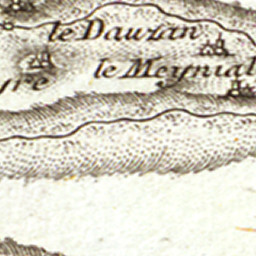 le Dauzan
le Meynial
yre